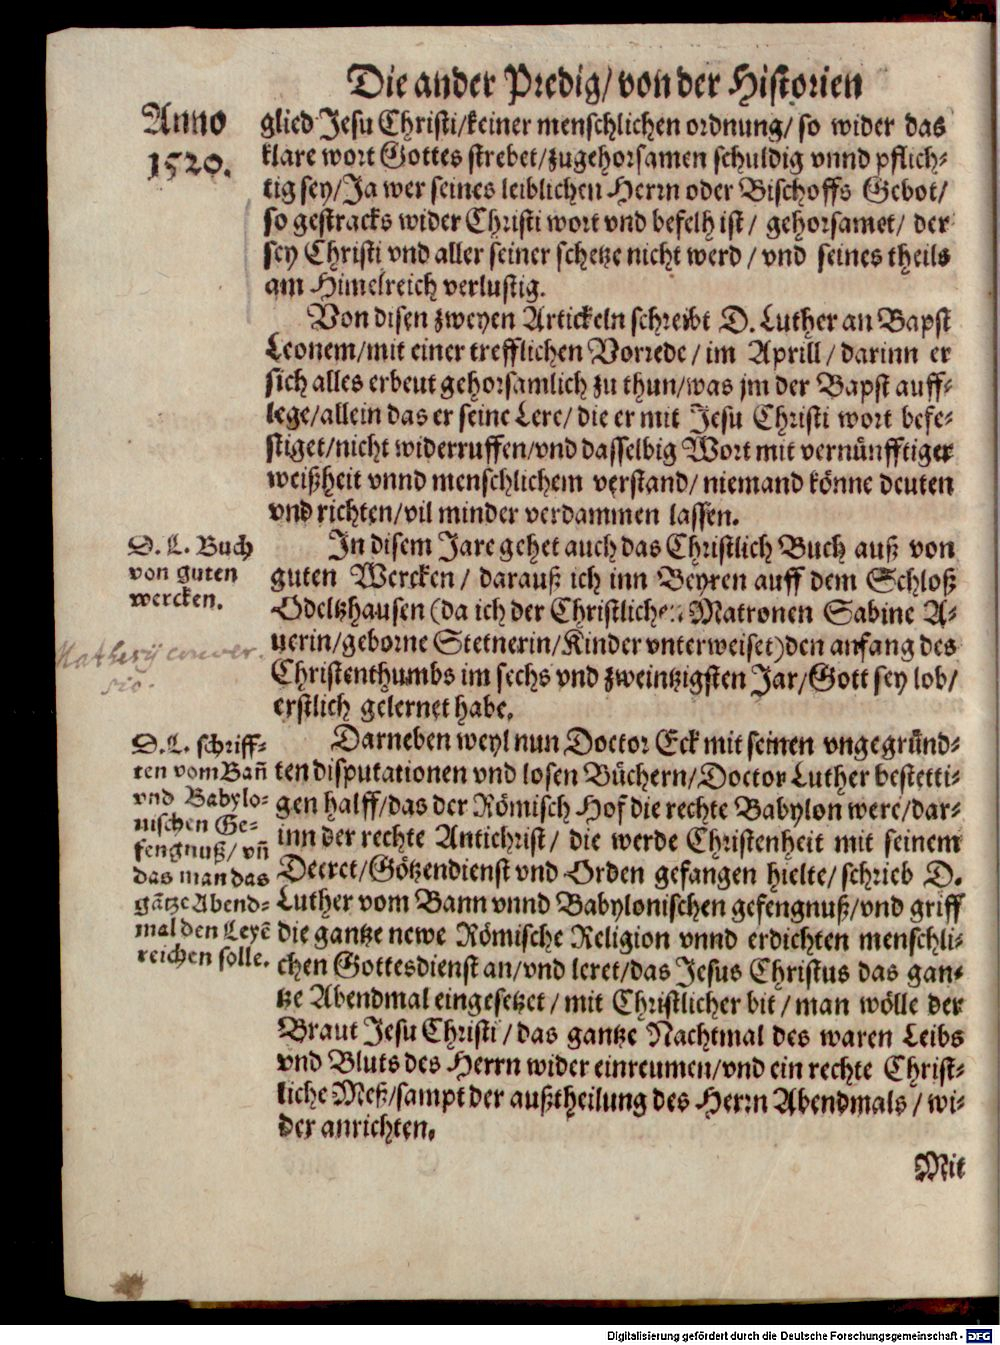 Die ander Predig/ von der Historien
Anno
1520.
glied Jesu Christi/keiner menschlichen ordnung/ so wider das
klare wort Gottes strebet/zugehorsamen schuldig vnnd pflich-
tig sey/Ja wer seines leiblichen Herrn oder Bischoffs Gebot/
so gestracks wider Christi wort vnd befelh ist/ gehorsamet/ der
sey Christi vnd aller seiner schetze nicht werd/ vnd seines theils
am Himelreich verlustig.
Von disen zweyen Artickeln schreibt D. Luther an Bapst
Leonem/mit einer trefflichen Vorrede/ im Aprill/ darinn er
sich alles erbeut gehorsamlich zu thun/was jm der Bapst auff-
lege/allein das er seine Lere/ die er mit Jesu Christi wort befe-
stiget/nicht widerruffen/vnd dasselbig Wort mit vernünfftiger
weißheit vnnd menschlichem verstand/ niemand könne deuten
vnd richten/vil minder verdammen lassen.
D. L. Buch
von guten
wercken.
In disem Jare gehet auch das Christlich Buch auß von
guten Wercken/ darauß ich inn Beyren auff dem Schloß
Odeltzhausen (da ich der Christlichen Matronen Sabine A-
uerin/geborne Stetnerin/Kinder vnterweiset)den anfang des
Christenthumbs im sechs vnd zweintzigsten Jar/Gott sey lob/
erstlich gelernet habe.
Mathesij conver
sio.
D.L. schriff-
ten vom Bañ
vnd Babylo-
nischen Ge-
fengnuß/ vñ
das man das
gãtze Abend-
mal den Leyẽ
reichen solle.
Darneben weyl nun Doctor Eck mit seinen vngegründ-
ten disputationen vnd losen Büchern/Doctor Luther bestetti-
gen halff/das der Römisch Hof die rechte Babylon were/dar-
inn der rechte Antichrist/ die werde Christenheit mit seinem
Decret/Götzendienst vnd Orden gefangen hielte/ schrieb D.
Luther vom Bann vnnd Babylonischen gefengnuß/vnd griff
die gantze newe Römische Religion vnnd erdichten menschli-
chen Gottesdienst an/vnd leret/das Jesus Christus das gan-
tze Abendmal eingesetzet/ mit Christlicher bit/ man wölle der
Braut Jesu Christi/ das gantze Nachtmal des waren Leibs
vnd Bluts des Herrn wider einreumen/vnd ein rechte Christ-
liche Meß/sampt der außtheilung des Herrn Abendmals/ wi-
der anrichten.
Mit
Digitalisierung gefördert durch die Deutsche Forschungsgemeinschaft - DFG